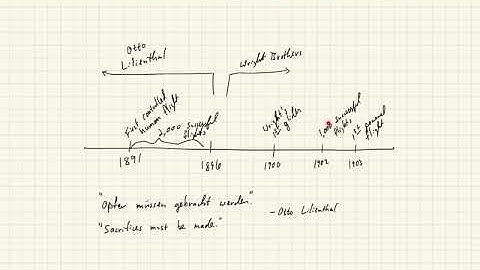 Otto
Lilienthal
Wright Brothers
First controlled
human flight
2,000 successful
flights
Wright's
1st glider
1,000 successful
flights
1st powered
flight
1891
1896
1900
1902
1903
"Opfer müssen gebracht werden."
"Sacrifices must be made."
- Otto Lilienthal